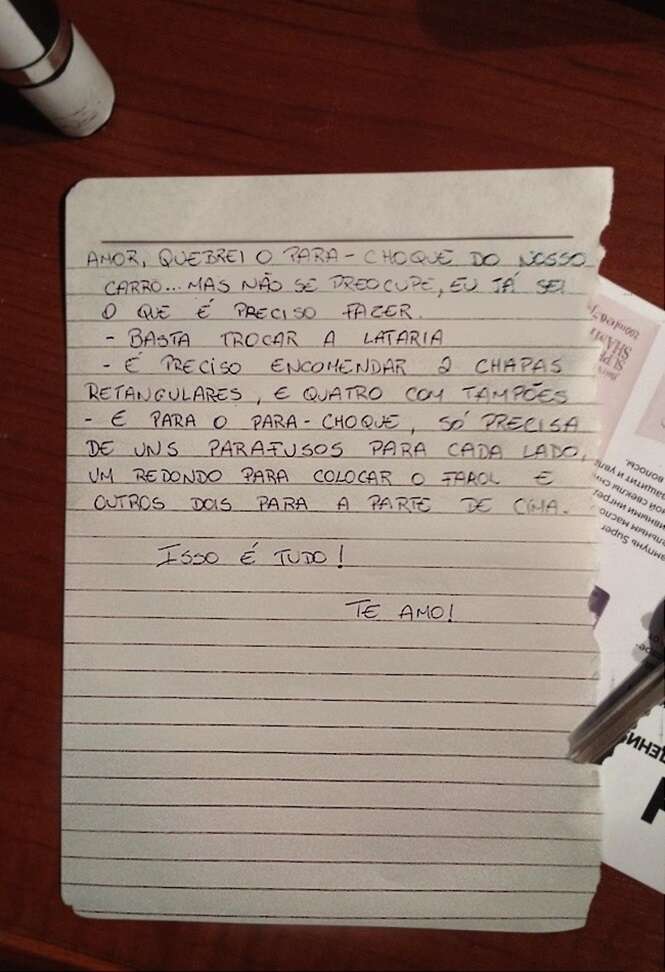 AMOR, QUEBREI O PARA-CHOQUE DO NOSSO
CARRO... MAS NÃO SE PREOCUPE, EU JÁ SEI
O QUE É PRECISO FAZER.
- BASTA TROCAR A LATARIA
- É PRECISO ENCOMENDAR 2 CHAPAS
RETANGULARES, E QUATRO COM TAMPÕES
- E PARA O PARA-CHOQUE, SÓ PRECISA
DE UNS PARAFUSOS PARA CADA LADO,
UM REDONDO PARA COLOCAR O FAROL E
OUTROS DOIS PARA A PARTE DE CIMA.
ISSO É TUDO!
TE AMO!